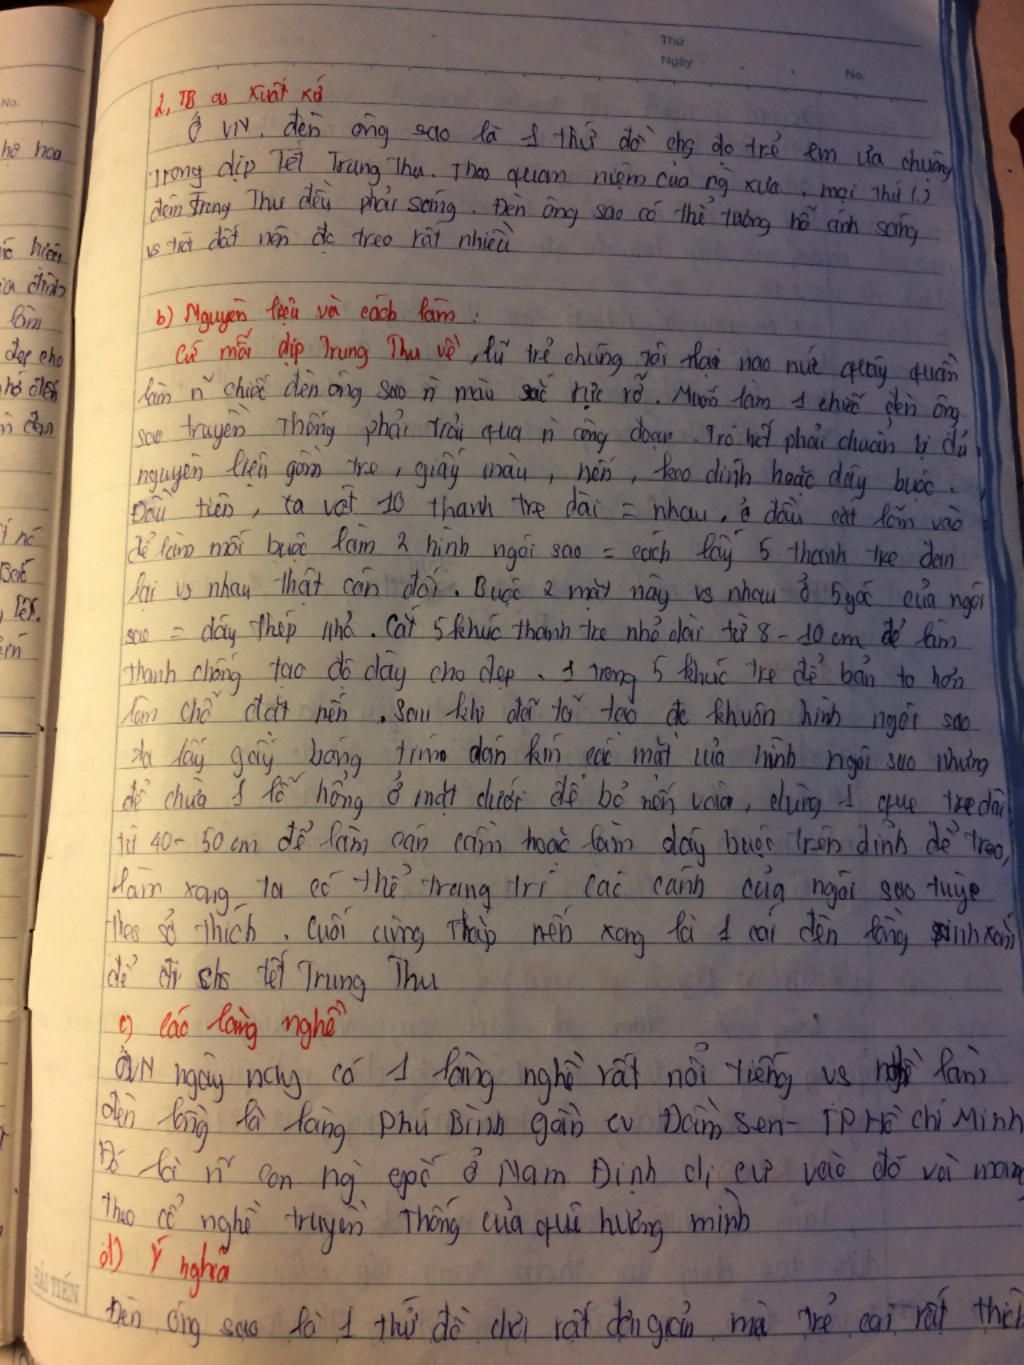 Thứ
Ngày
No.
2, TB a, Xuất xứ
Ở VN, đèn ông sao là 1 thứ đồ chs do trẻ em ưa chuộng
trong dịp Tết Trung Thu. Theo quan niệm của ng xưa, mọi thứ (.)
đêm Trung Thu đều phải sáng. Đèn ông sao có thể tương hỗ ánh sáng
vs trời đất nên đc treo rất nhiều
b) Nguyên liệu và cách làm:
Cứ mỗi dịp Trung Thu về, lũ trẻ chúng tôi lại nao nức quây quần
làm n~ chiếc đèn ông sao n màu sắc rực rỡ. Muốn làm 1 chiếc đèn ông
sao truyền thống phải trải qua n công đoạn. Trc hết phải chuẩn bị đủ
nguyên liệu gồm tre, giấy màu, nến, keo dính hoặc dây buộc.
Đầu tiên, ta vót 10 thanh tre dài = nhau, ở đầu cắt lõm vào
để làm mối buộc làm 2 hình ngôi sao = cách lấy 5 thanh tre đan
lại vs nhau thật cân đối. Buộc 2 mặt này vs nhau ở 5 góc của ngôi
sao = dây thép nhỏ. Cắt 5 khúc thanh tre nhỏ dài từ 8 - 10 cm để làm
thanh chống tạo độ dày cho đẹp. 1 trong 5 khúc tre để bản to hơn
làm chỗ đặt nến. Sau khi đã tạo đc khuôn hình ngôi sao
ta lấy giấy bóng dán kín các mặt của hình ngôi sao nhưng
để chừa 1 lỗ hổng ở mặt dưới để bỏ nến vào, dùng 1 que tre dài
từ 40 - 50 cm để làm cán cầm hoặc làm dây buộc trên đỉnh để treo,
làm xong ta có thể trang trí các cánh của ngôi sao tuỳ
theo sở thích. Cuối cùng thắp nến xong là 1 cái đèn lồng xinh xắn
để đi chs tết Trung Thu
c) Các làng nghề
Ở VN ngày nay có 1 làng nghề rất nổi tiếng vs nghề làm
đèn lồng là làng Phú Bình gần cv Đầm Sen - TP Hồ Chí Minh
Đó là n~ con ng gốc ở Nam Định di cư vào đó và mang
theo cả nghề truyền thống của quê hương mình
d) Ý nghĩa
HẢI TIẾN
Đèn ông sao là 1 thứ đồ chơi rất đơn giản mà trẻ con rất thích